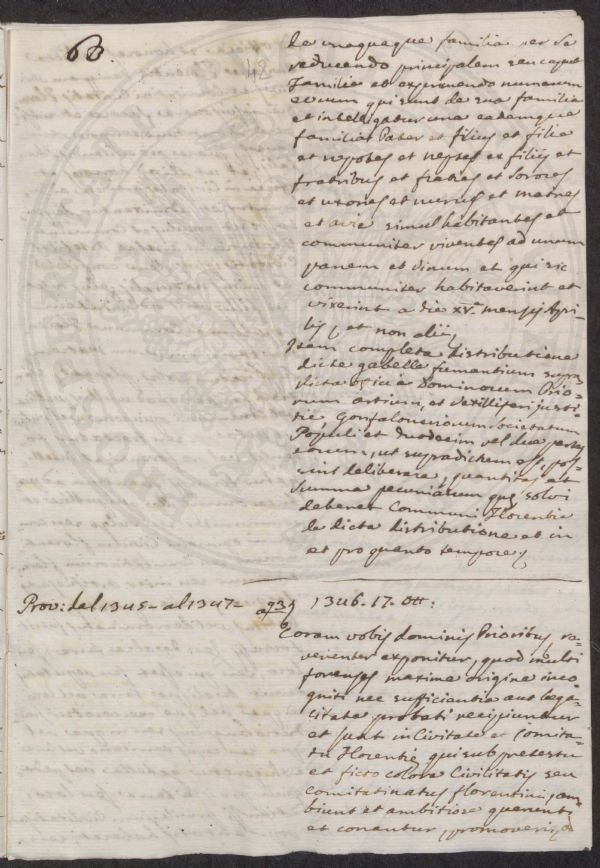 68
48
de unaqueque familia per se
reducendo principalem seu caput
Familie et exprimendo numerum
eorum qui sunt de sua familia
et intelligatur una eademque
familia Pater et filius et filie
et nepotes et neptes ex filijs et
fratribus et fratres et sorores
et uxores et nurus et matres
et avie simul habitantes et
communiter viventes ad unum
panem et vinum et qui sic
communiter habitaverint et
vixerint a die XV. mensis Apri-
lis, et non alij,
Item completa distributione
dicte gabelle fumantium supra-
dicta officia Dominorum Prio-
rum artium, et Vexilliferi justi-
tie, Gonfaloneriorum, societatum
Populi et duodecim vel due partes
eorum, ut supradictum est, pos-
sint deliberare, quantitas et
summa pecuniarum que solvi
debent Communi Florentie
de dicta distributione et in
et pro quanto tempore,
Prov: dal 1345- al 1347- a 73 1346. 17. Ott:
Coram vobis dominis Prioribus re-
verenter exponitur, quod multi
forenses maxima origine inco-
gniti nec sufficientia aut lega-
litate probati recipiuntur
et sunt in Civitate et Comita-
tu Florentie qui sub pretestu
et ficto colore Civilitatis seu
comitatinatus florentini, am-
biunt et ambitiose querunt,
et conantur, promoveri,